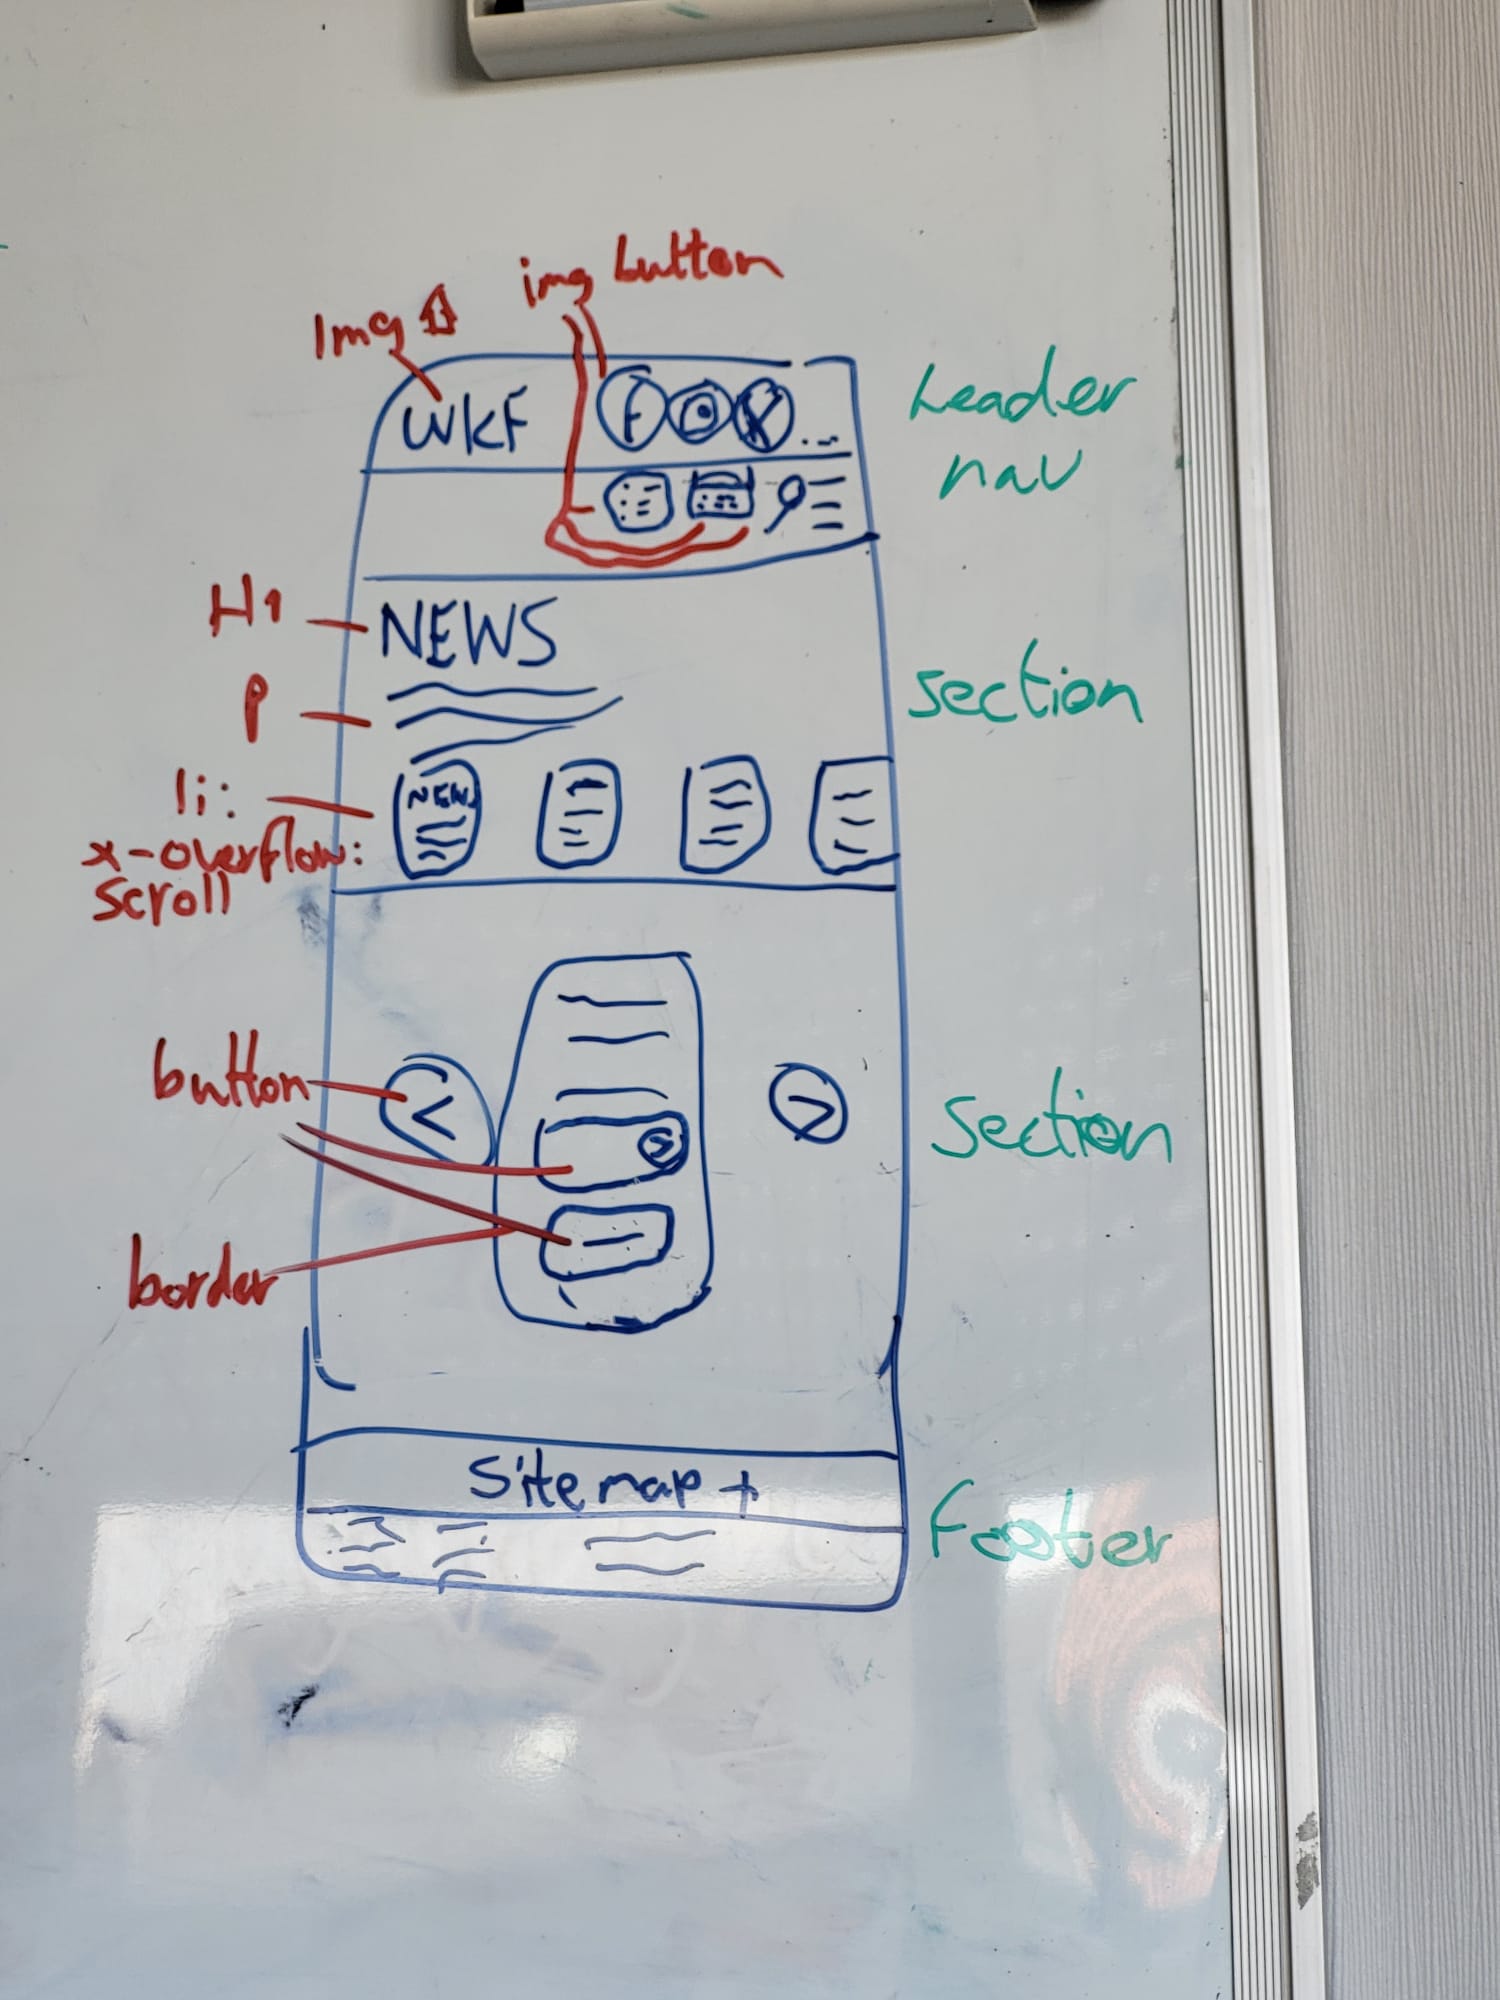 img button
Img
WKF
F
...
header
nav
H1
NEWS
p
section
li:
NEW
x-overflow:
scroll
button
<
>
>
section
border
Sitemap +
footer